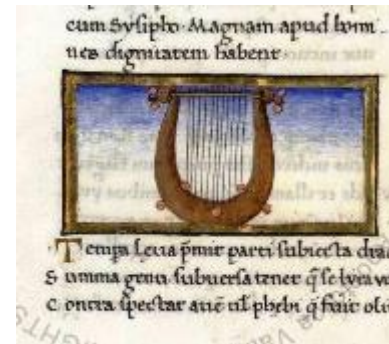 cum Sysipho. Magnam apud homi-
nes dignitatem habent
Tempa leua premit parti subiecta
Summa genu subuersa tenet q̄ se lyra
Contra spectat auē ul̄ phebi q̄ fuit